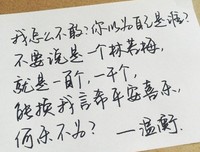 我怎么不敢?你以为自己是谁?
不要说是一个林若梅,
就是一百个,一千个,
能换我言希平安喜乐,
何乐不为?  —温衡.